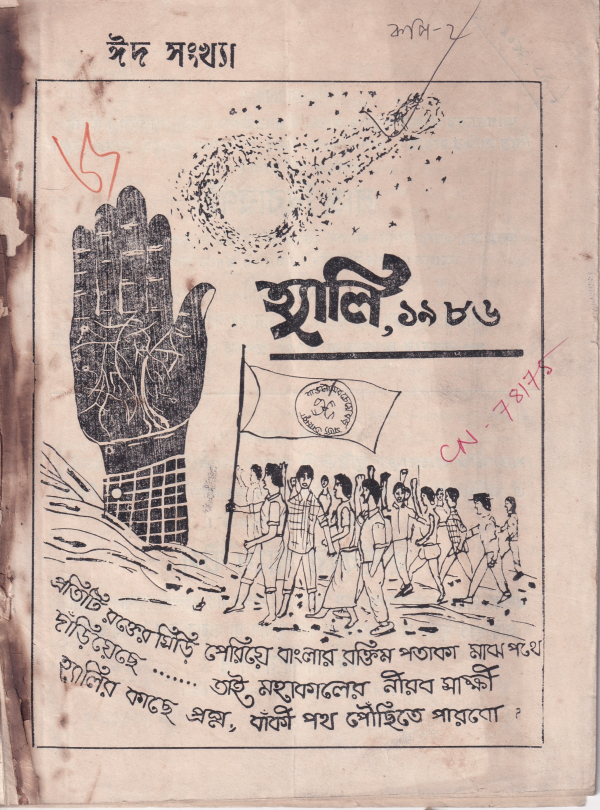 কপি-২
ঈদ সংখ্যা
হ্যালি, ১৯৮৬
CN - 78175
প্রতিটি রক্তের সিঁড়ি পেরিয়ে বাংলার রক্তিম পতাকা মাঝ পথে
দাঁড়িয়েছে ....... তাই মহাকালের নীরব সাক্ষী
হ্যালির কাছে প্রশ্ন, বাঁকী পথ পৌঁছিতে পারবো ?